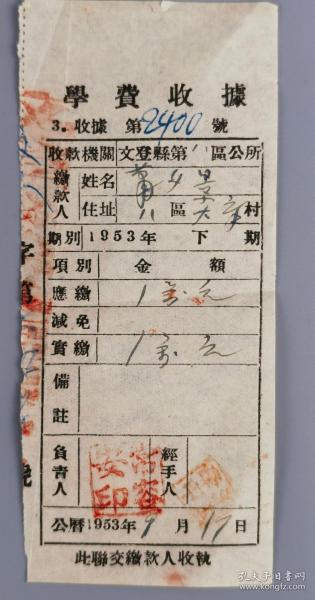 學費收據
3. 收據 第2400號
收款機關 文登縣第八區公所
繳款人 姓名
住址 八區 村
期別 1953年 下期
項別 金額
應繳 1萬元
減免
實繳 1萬元
備註
負責人
經手人
公曆1953年9月17日
此聯交繳款人收執
字第
孔夫子旧书网